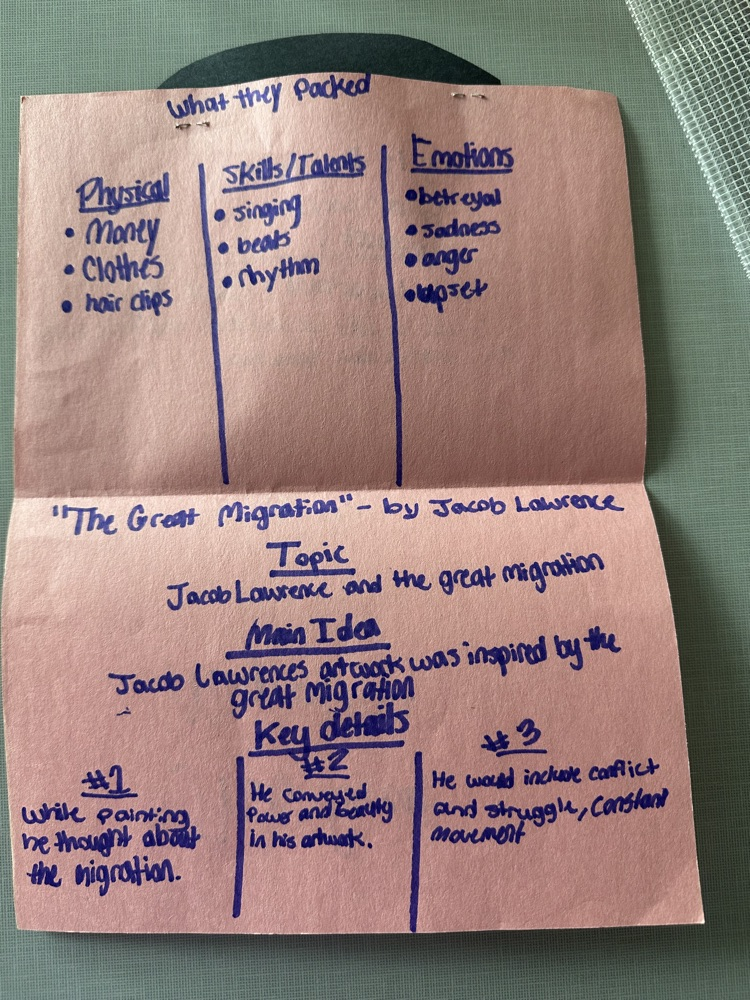 What they Packed
Physical
• Money
• Clothes
• hair clips
Skills/Talents
• singing
• beats
• rhythm
Emotions
• betreyal
• sadness
• anger
• upset
"The Great Migration" - by Jacob Lawrence
Topic
Jacob Lawrence and the great migration
Main Idea
Jacob Lawrences artwork was inspired by the
great migration
Key details
#1
While painting
he thought about
the migration.
#2
He conveyed
Power and beauty
in his artwork.
#3
He would include conflict
and struggle, constant
movement